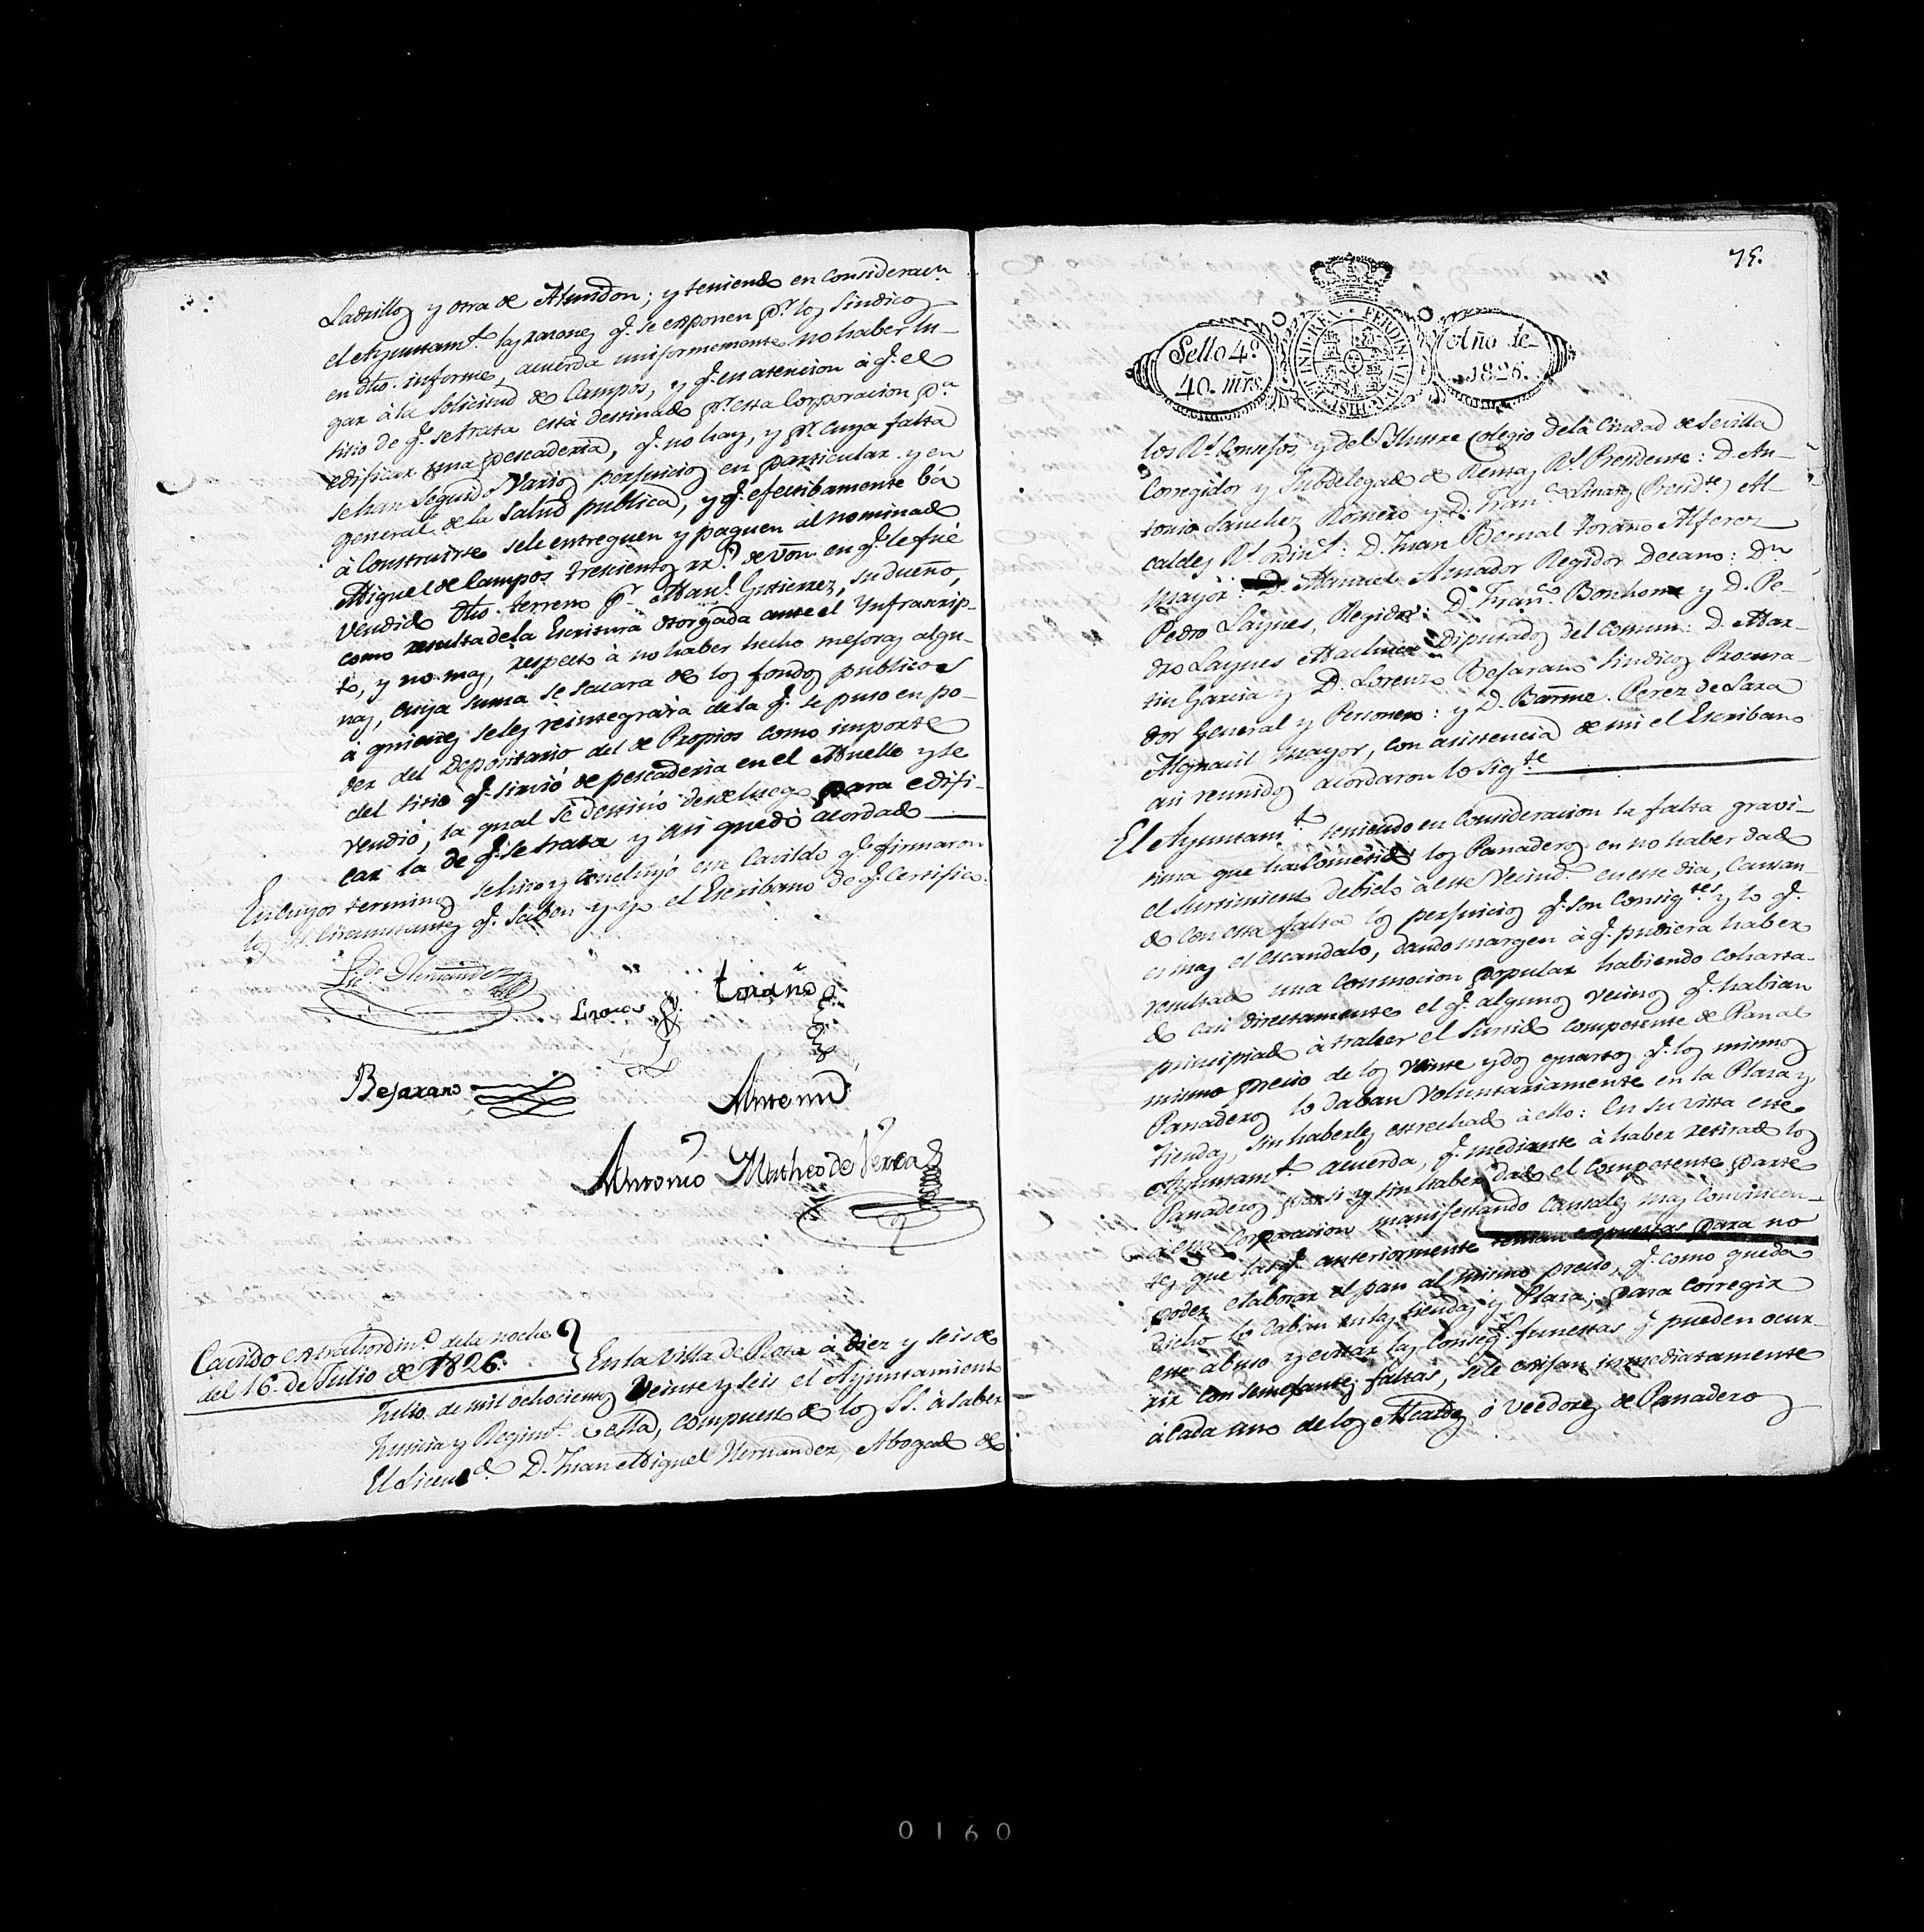 Ladrillos y otra de Almidon; y teniendo en consideracn
el Ayuntamto las razones qe se exponen pr los Sindicos
en dho. informe, acuerda uniformemente no haber lu-
gar à la solicitud de Campos, y qe en atencion à qe el
sitio de qe se trata està destinado pr esta Corporacion pa
edificar una pescaderia, qe no hay, y pr cuya falta
se han seguido varios perjuicios en particular y en
general de la salud publica, y qe efectibamente bá
à construirse se le entreguen y paguen al nominado
Miguel de Campos trescientos rrs. de von en qe le fué
vendido dho terreno pr Manl Gutierrez, su dueño,
como resulta de la Escritura otorgada ante el Ynfrascrip-
to, y no mas, respecto à no haber hecho mejoras algu-
nas, cuya suma se sacara de los fondos publicos
à quienes se les reintegrarà de la qe se puso en po-
der del Depositario del de Propios como importe
del sitio qe sirviò de pescaderia en el Muelle y se
vendiò, la qual se destinò desde luego para edifi-
car la de qe se trata y asi quedò acordado
En cuyos terminos se hizo y concluyó este Cavildo qe firmaron
los SS. Circunstantes qe saben y yo el Escribano de qe Certifico.
Ldo Hernandez
toraño
Bejarano
Ante mi
Antonio Matheo de
Cavildo extrahordino de la noche
del 16. de Julio de 1826.
En la Villa de Rota à diez y seis de
Julio de mil ochocientos veinte y seis el Ayuntamiento
Justicia y Regimto de ella, compuesto de los SS. à saber
El Licendo D. Juan Miguel Hernandez, Abogado de
75.
Sello 4º
40. mrs.
Año de
1826.
los Rs Consejos y del Ylustre Colegio de la Ciudad de Sevilla
Corregidor y Subdelegado de Rentas Rs Presidente: D. An-
tonio Sanchez Romero y D. Franco (Presdte) Al-
caldes Rs ordins: D. Juan Bernal toraño Alferez
Mayor: D. Manuel Amador Regidor Decano: Dn
Pedro Laynes, Regidor: D. Franco Bonhome y D. Pe-
dro Laynes diputados del Comun: D. Mar-
tin Garcia y D. Lorenzo Bejarano Sindicos Procura-
dor General y Personero: y D. Barme Perez de Lara
Alguacil mayor, con asistencia de mi el Escribano
asi reunidos acordaron lo sigte
El Ayuntamto teniendo en consideracion la falta gravi-
sima que han cometido los Panaderos en no haber dado
el surtimiento debido à este Vecindo en este dia, causan-
do con esta falta los perjuicios qe son consigtes y lo qe
es mas el escandalo, dando margen à qe pudiera haber
resultado una conmocion popular habiendo coharta-
do casi directamente el qe algunos vecinos qe habian
principiado à traher el surtido competente de Pan al
mismo precio de los veinte y dos quartos qe los mismos
Panaderos lo daban voluntariamente en la Plaza y
tiendas, sin haberles estrechado à ello: En su vista este
Ayuntamto acuerda, qe mediante à haber retirado los
Panaderos por si y sin haber dado el competente parte
à esta Corporacion manifestando causales mas convincen-
tes que las qe anteriormente tenian expuestas para no
poder elaborar el pan al mismo precio, qe como queda
dicho lo daban en las tiendas y Plaza; para corregir
este abuso y evitar las consegs funestas qe pueden ocur-
rir con semejantes faltas, se le exijan inmediatamente
à cada uno de los Alcaldes ó veedores de Panadero
0160